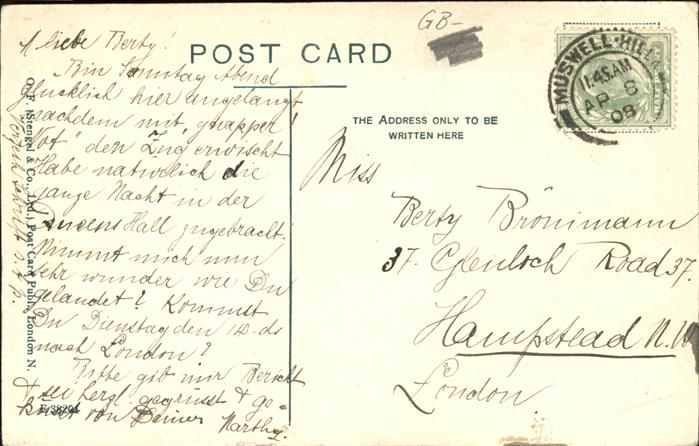 GB-
POST CARD
MUSWELL-HILL
11.45 AM
AP 8
08
THE ADDRESS ONLY TO BE
WRITTEN HERE
Miss
Berty Brönimann
37. Glenloch Road 37.
Hampstead N.W
London
Meine liebe Berty!
Bin Sonntag Abend
glücklich hier angelangt
nachdem mit "knapper
Not" den Zug erwischt
Habe natürlich die
ganze Nacht in der
Hall zugebracht.
Nimmt mich nun
sehr wunder wie Du
gelandet? Kommst
Du Dienstag den 14. ds
nach London?
Bitte gib mir Bericht
& sei herzl. gegrüsst & ge-
küsst von Deiner Marthy.
O. F. Stengel & Co., Ltd., Post Card Publ., London N.
E 38204